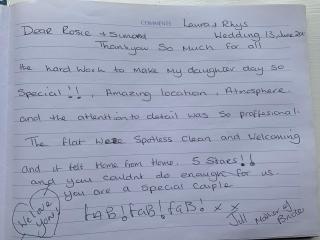 COMMENTS
Laura + Rhys
Dear Rosie + Simond
Wedding 13, June 20
Thankyou so much for all
the hard work to make my daughter day so
special !!, Amazing location, Atmosphere
and the attention to detail was so proffesional.
The flat were spotless clean and welcoming
and it felt Home from Home. 5 Stars!!
and you couldnt do enough for us.
you are a special couple
We love you!
FaB! FaB! FaB! x x
Jill Mother of
Bride